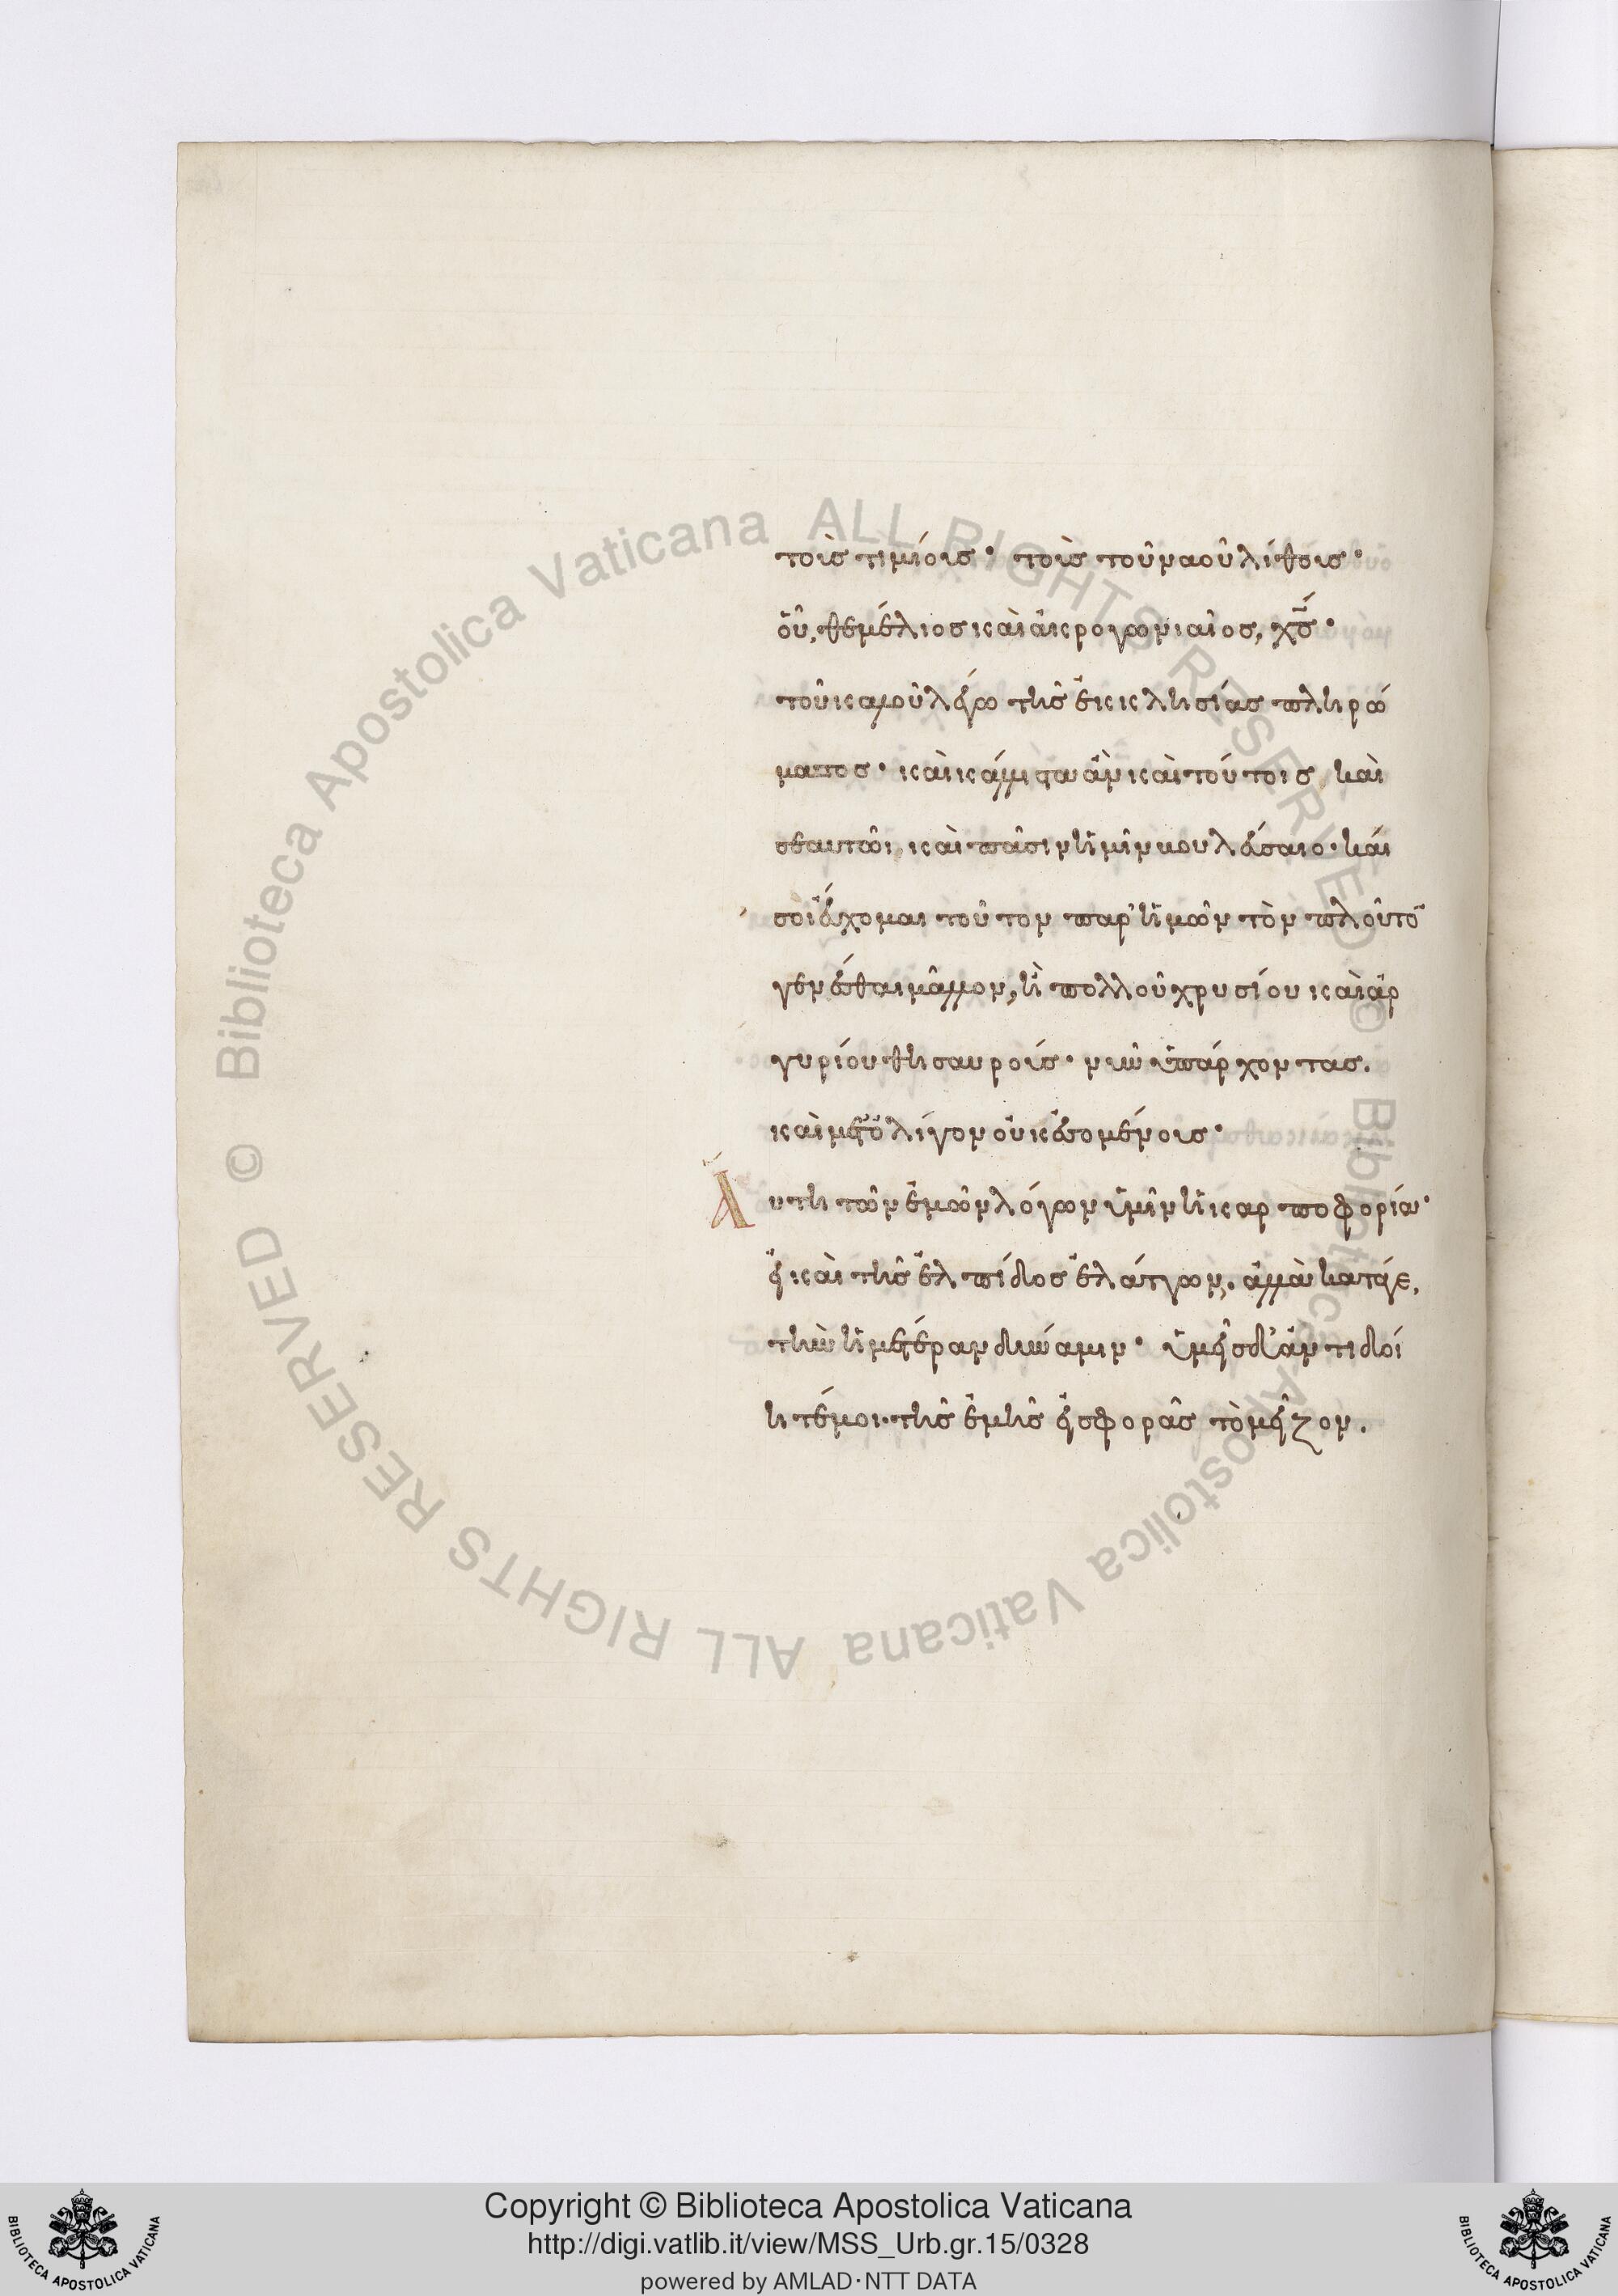 τοῖς τιμίοις· τοῖς τοῦ ναοῦ λίθοις·
οὗ, θεμέλιος καὶ ἀκρογωνιαῖος, χς·
τοῦ καινοῦ λέγω τῆς ἐκκλησίας πληρώ
ματος· καὶ κάλλιστα ἂν καὶ τούτοις, καὶ
σεαυτῶι, καὶ πᾶσιν ἡμῖν βουλεύσαιο· καί
σοι εὔχομαι τοῦτον παρ' ἡμῶν τὸν πλοῦτο
γενέσθαι μᾶλλον, ἢ πολλοῦ χρυσίου καὶ ἀρ
γυρίου θησαυρούς· νῦν ὑπάρχοντας.
καὶ μετ' ὀλίγον οὐκ ἐσομένοις·
Αὕτη τῶν ἐμῶν λόγων ὑμῖν ἡ καρποφορία·
εἰ καὶ τῆς ἐλπίδος ἐλάττων, ἀλλὰ κατά γε,
τὴν ἡμετέραν δύναμιν· ὑμεῖς δ' ἀντιδοί
ητέ μοι τῆς ἐμῆς εἰσφορᾶς τὸ μεῖζον.
© Biblioteca Apostolica Vaticana ALL RIGHTS RESERVED
© Biblioteca Apostolica Vaticana ALL RIGHTS RESERVED
Copyright © Biblioteca Apostolica Vaticana
http://digi.vatlib.it/view/MSS_Urb.gr.15/0328
powered by AMLAD·NTT DATA
BIBLIOTECA APOSTOLICA VATICANA
BIBLIOTECA APOSTOLICA VATICANA